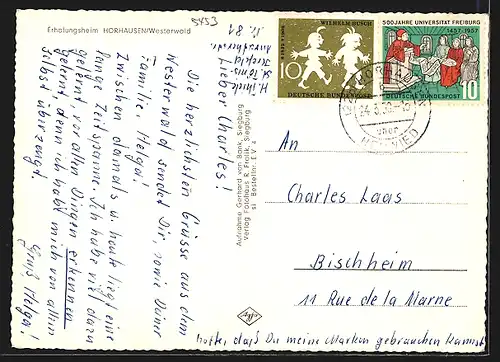 Erholungsheim HORHAUSEN/Westerwald
5453
Lieber Charles!
Die herzlichsten Grüsse aus dem
Westerwald sendet Dir, sowie Deiner
Familie, Helga!
Zwischen damals u. heute liegt eine
lange Zeitspanne. Ich habe viel dazu
gelernt, vor allen Dingen erkennen
gelernt, denn ich hab mich von allem
selbst überzeugt
Gruß Helga!
Aufnahme Gerhard von Bank, Siegburg
Verlag Fotohaus R. Frolik, Siegburg
Agfa
WILHELM BUSCH
10
DEUTSCHE BUNDESPOST
500 JAHRE UNIVERSITÄT FREIBURG
1457-1957
DEUTSCHE BUNDESPOST 10
HORHAUSEN
über
NEUWIED
An
Charles Laas
Bischheim
11 Rue de la Marne
hoffe, daß Du meine Marken gebrauchen kannst